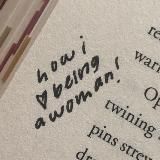 how i
♡ being
a woman!
re
warn
Op
twining
pins strew